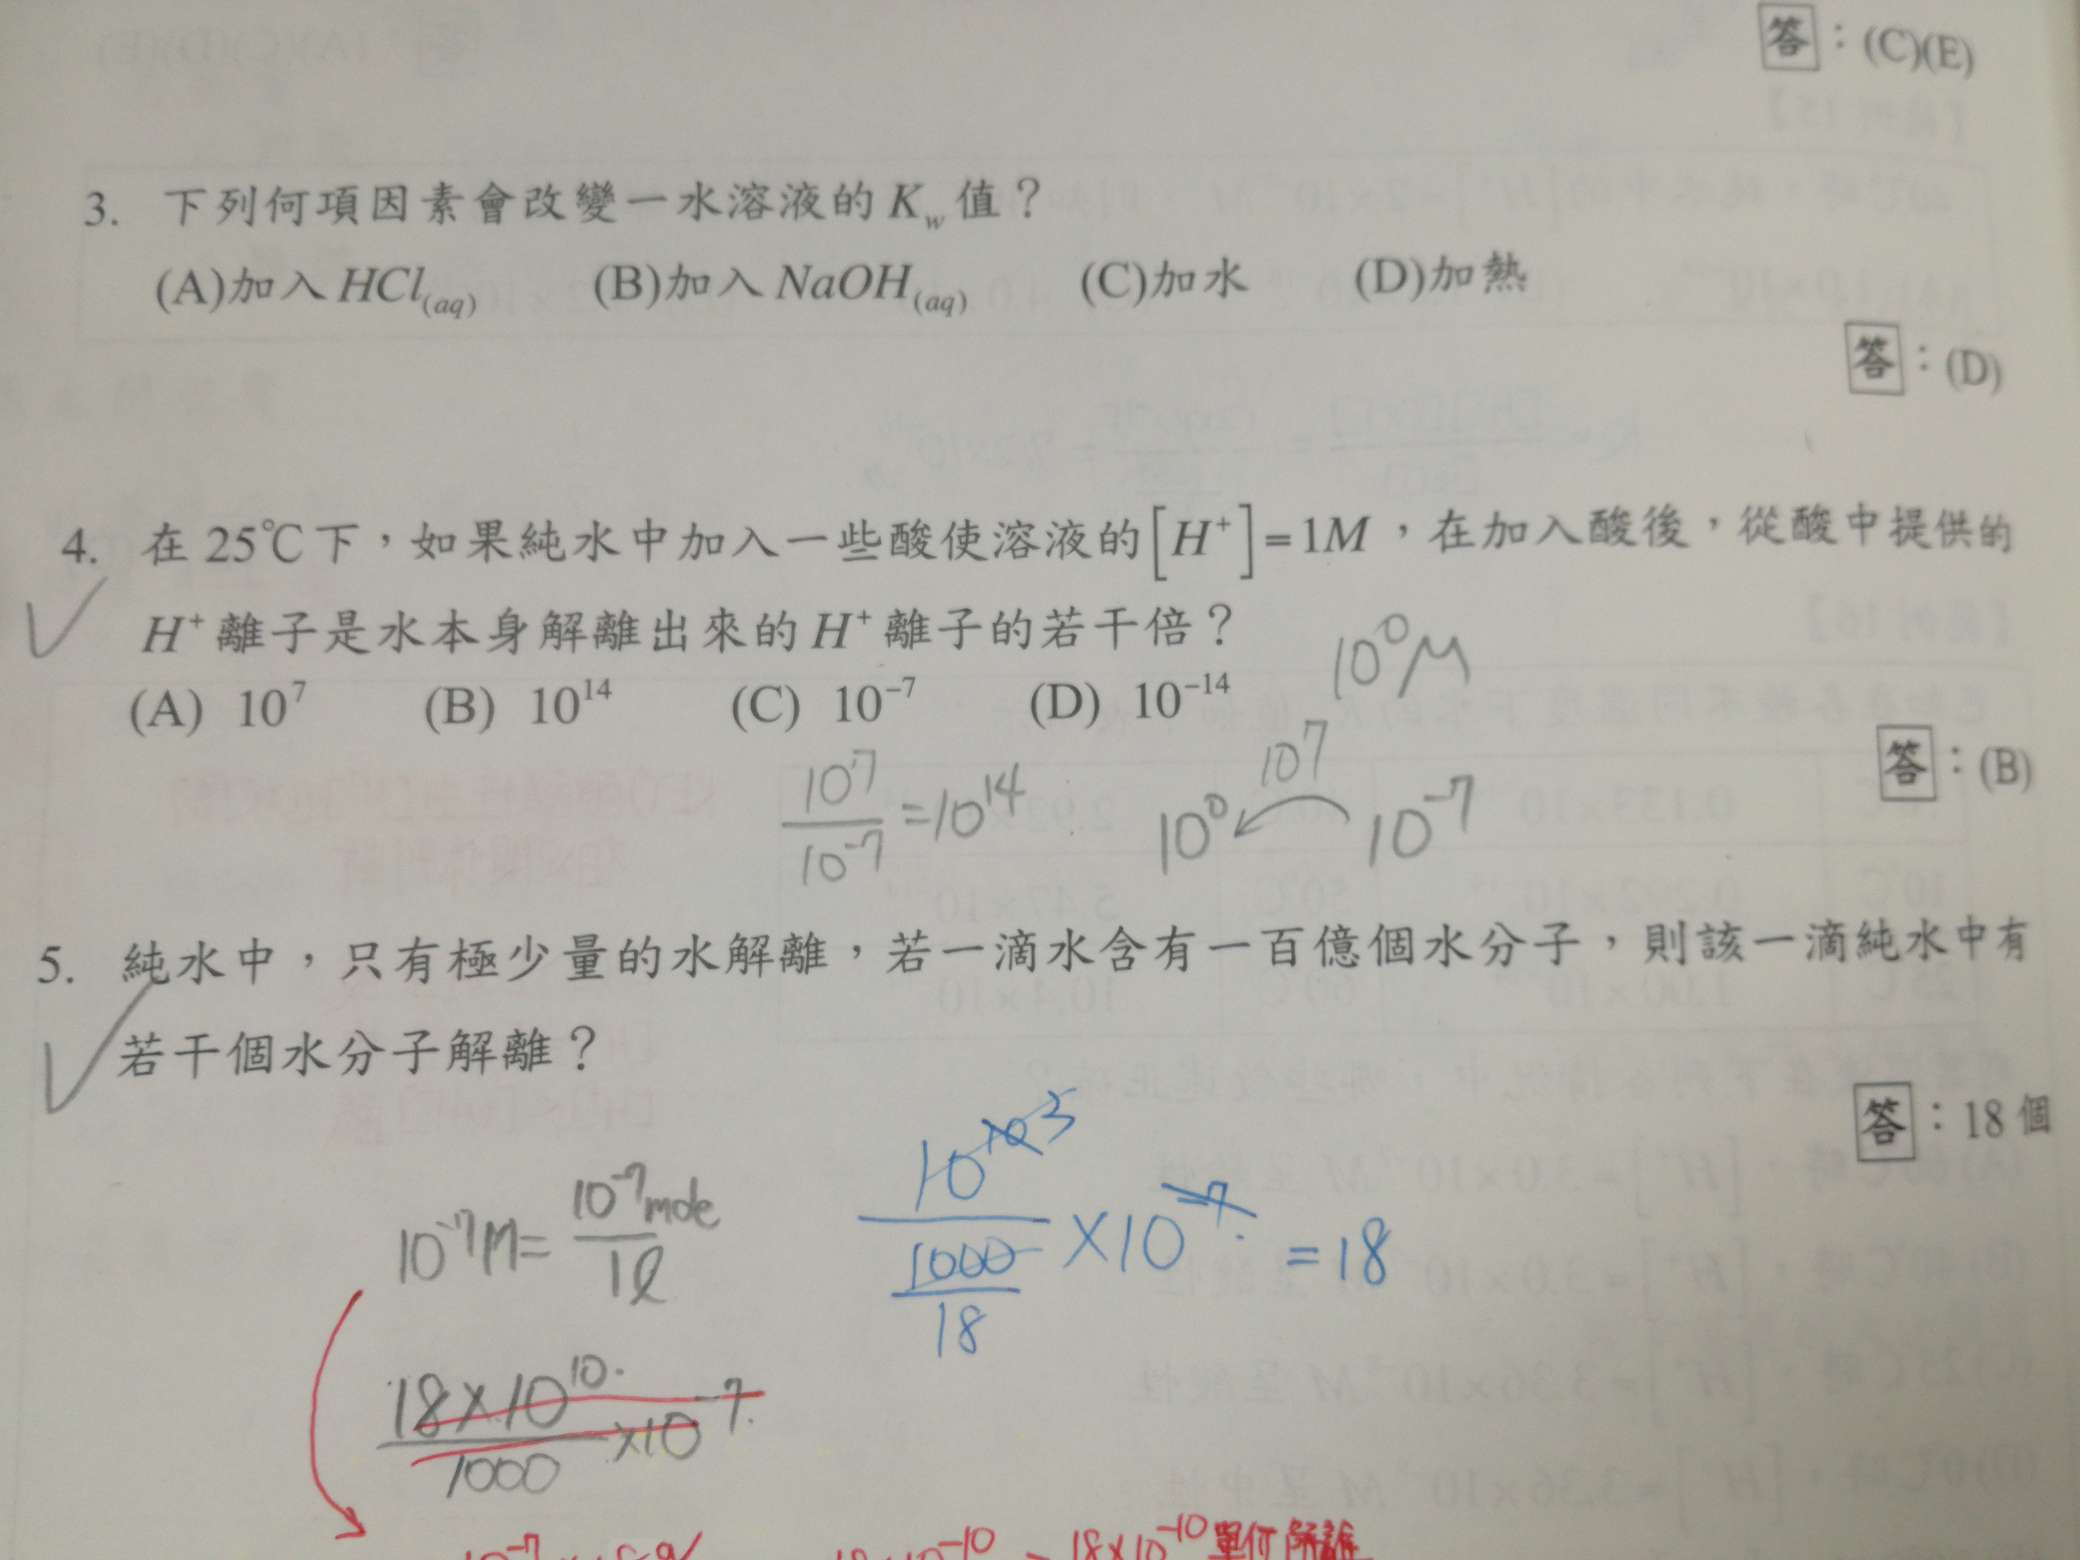 答：(C)(E)
3. 下列何項因素會改變一水溶液的 Kw 值？
(A)加入 HCl(aq) (B)加入 NaOH(aq) (C)加水 (D)加熱
答：(D)
4. 在 25℃下，如果純水中加入一些酸使溶液的[H⁺]=1M，在加入酸後，從酸中提供的
H⁺離子是水本身解離出來的 H⁺離子的若干倍？
10⁰M
(A) 10⁷ (B) 10¹⁴ (C) 10⁻⁷ (D) 10⁻¹⁴
答：(B)
10⁷/10⁻⁷ = 10¹⁴
10⁷
10⁰ ← 10⁻⁷
5. 純水中，只有極少量的水解離，若一滴水含有一百億個水分子，則該一滴純水中有
若干個水分子解離？
答：18個
10⁻⁷M = 10⁻⁷mole/1ℓ
10¹⁰ ³/(1000/18) × 10⁻⁷ = 18
18×10¹⁰/1000 × 10⁻⁷
18×10⁻¹⁰